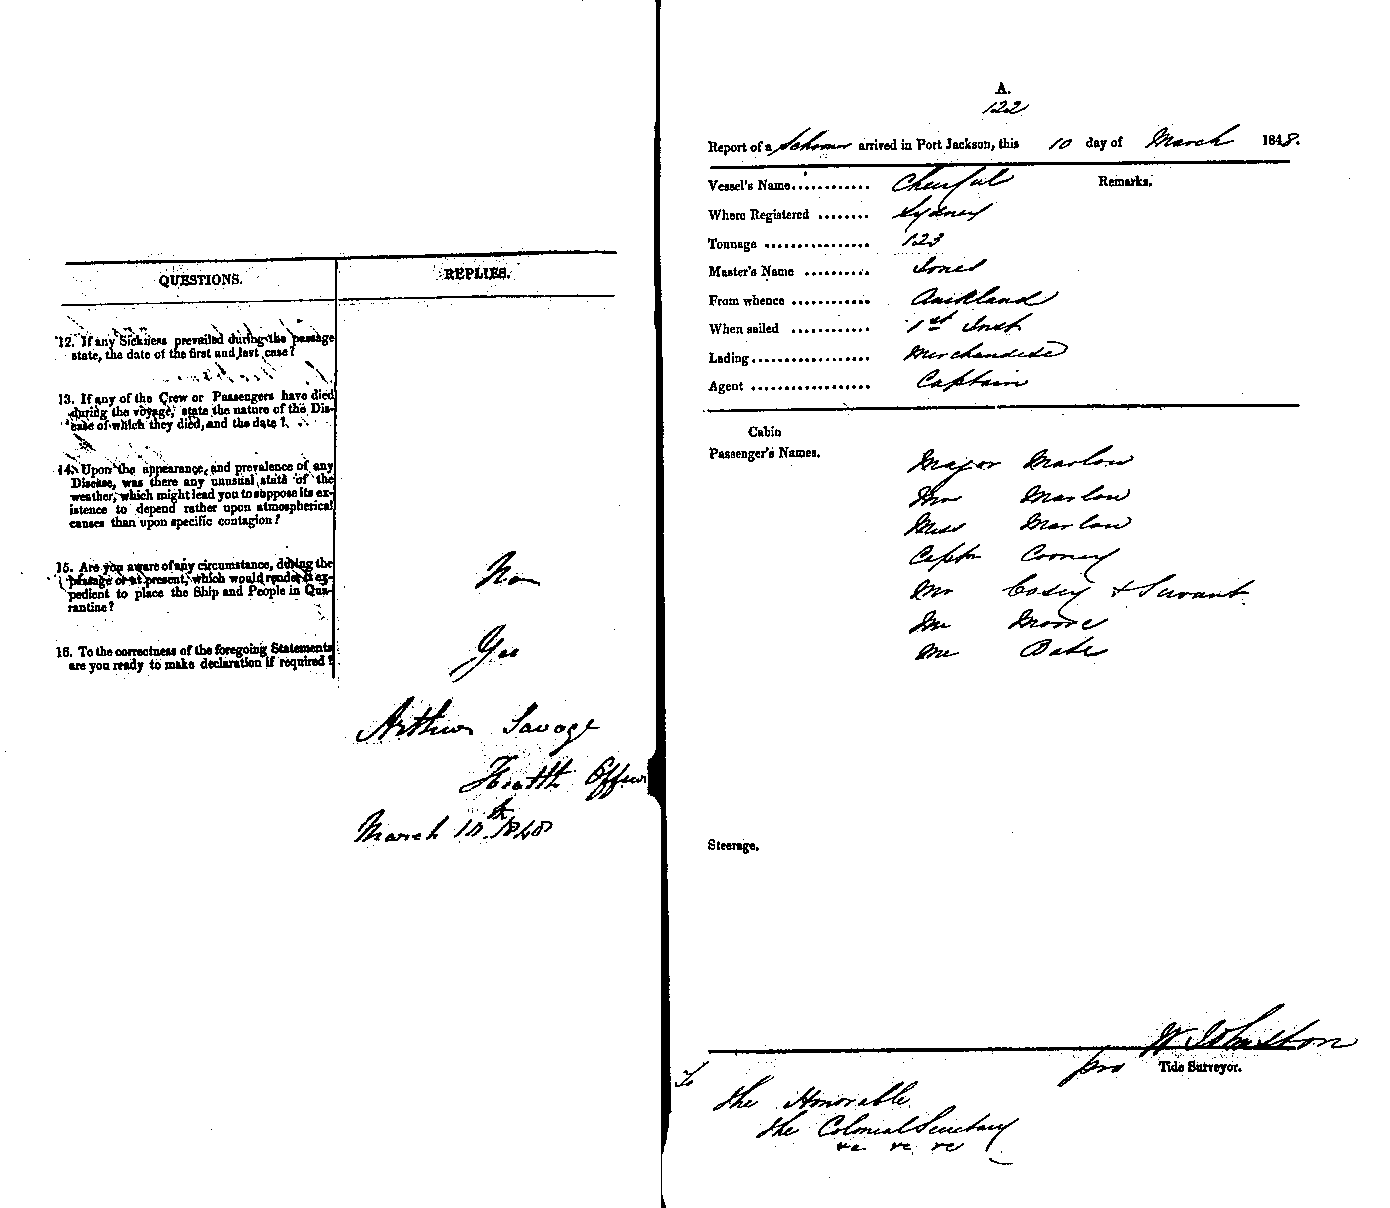 QUESTIONS. REPLIES.
12. If any Sickness prevailed during the passage
state, the date of the first and last case?
13. If any of the Crew or Passengers have died
during the voyage, state the nature of the Dis-
ease of which they died, and the date?
14. Upon the appearance, and prevalence of any
Disease, was there any unusual state of the
weather, which might lead you to suppose its ex-
istence to depend rather upon atmospherical
causes than upon specific contagion?
15. Are you aware of any circumstance, during the
passage or at present, which would render it ex-
pedient to place the Ship and People in Qua-
rantine?
No
16. To the correctness of the foregoing Statements
are you ready to make declaration if required?
Yes
Arthur Savage
Health Officer
March 10th 1848
A.
122
Report of a Schooner arrived in Port Jackson, this 10 day of March 1848.
Vessel's Name............ Cheerful Remarks.
Where Registered ........ Sydney
Tonnage ................ 123
Master's Name .......... Jones
From whence ............ Auckland
When sailed ............ 1st Inst
Lading.................. Merchandise
Agent .................. Captain
Cabin
Passenger's Names.
Major Marlow
Mrs Marlow
Miss Marlow
Captn Cooney
Mr Cosey & Servant
Mr Moore
Mr Bate
Steerage.
W Johnston
pro Tide Surveyor.
To
The Honorable
the Colonial Secretary
&c &c &c